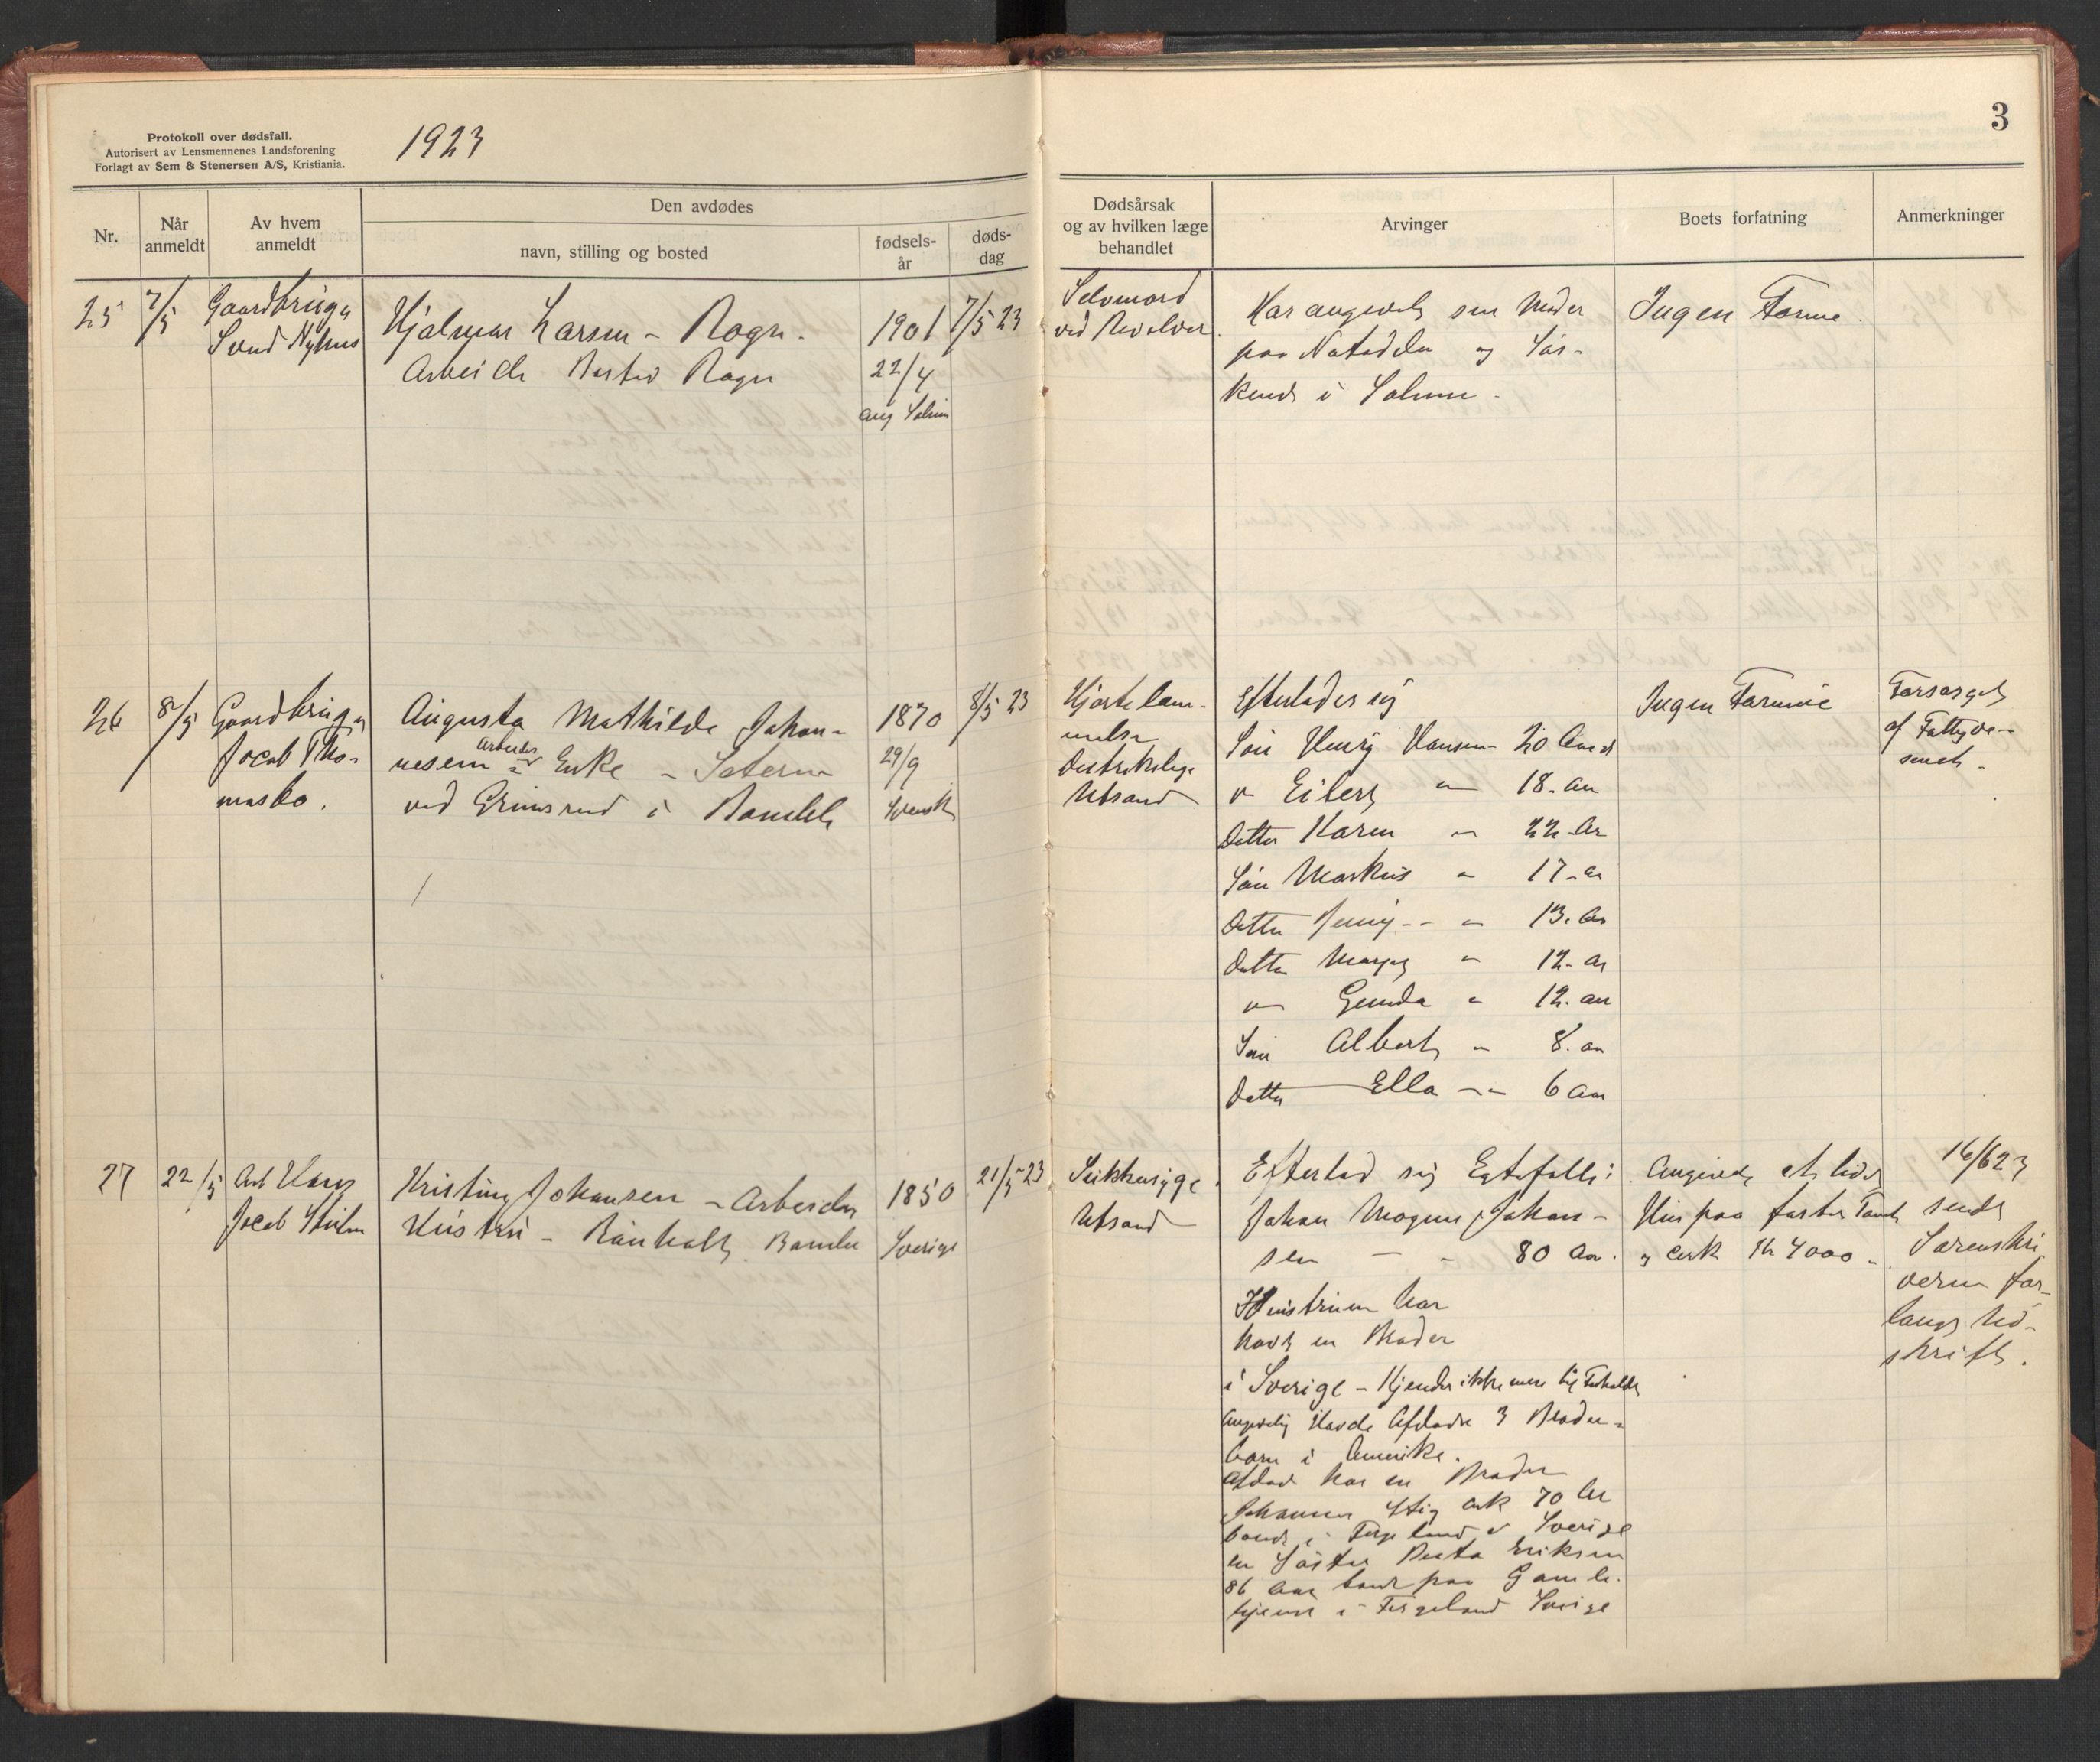 Protokoll over dødsfall.
Autorisert av Lensmennenes Landsforening
Forlagt av Sem & Stenersen A/S, Kristiania.
1923
3
Nr.
Når
anmeldt
Av hvem
anmeldt
Den avdødes
navn, stilling og bosted
fødsels-
år
døds-
dag
Dødsårsak
og av hvilken læge
behandlet
Arvinger
Boets forfatning
Anmerkninger
25
7/5
Gaardbruger
Svend Nyhus
Hjalmar Larsen - Rogn.
Arbeider Bosted Rogn
1901
22/4
ang Solum
7/5 23
Selvmord
ved Revolver.
Har angivels sin Moder
paa Notodden og Søs-
kende i Solum.
Ingen Formue.
26
8/5
Gaardbruger
Jacob Tho-
masbo.
Augusta Mathilde Johan-
nesen Arbeider Enke - Sæteren
ved Grimsrud i Bamble
1870
29/9
Svensk
8/5 23
Hjertelam-
melse
Distriktslege
Utsand
Efterlader sig
Søn Henry Hansen 20 Aar
" Eilert " 18. Aar
Datter Karen " 22 Ar
Søn Markus " 17 - ar
Datter Jenny - - " 13. Aar
Datter Margit " 12. ar
" Gunda " 12. aar
Søn Albert " 8. aar
Datter Ella - " 6 Aar
Ingen Formue
Forsørget
af Fattigve-
senet.
27
22/5
Arb Hans
Jacob Stulen
Kristine Johansen - Arbeider
Hustru - Rønholt Bamble
1850
Sverige
21/5 23
Sukkersyge.
Utsand
Efterlod sig Egtefælle:
Johan Mogens Johan-
sen - - 80 Aar.
Hustruen har
havt en Broder
i Sverige - Kjender ikke mere til Forholdet
Angivelig Havde Afdøde 3 Broder-
børn i Amerika.
Afdød har en Broder
Johannes Stig cirk 70 Aar
boende i Fergeland i Sverige
en Søster Berta Eriksen
86 Aar boende paa Gamle-
hjemmet i Fergeland Sverige
Angivels et lidet
Hus paa fæstet Tomt
og cirk Kr 4000 -
16/6 23
sendt
Sorenskri
veren for-
langt Ud-
skrift.